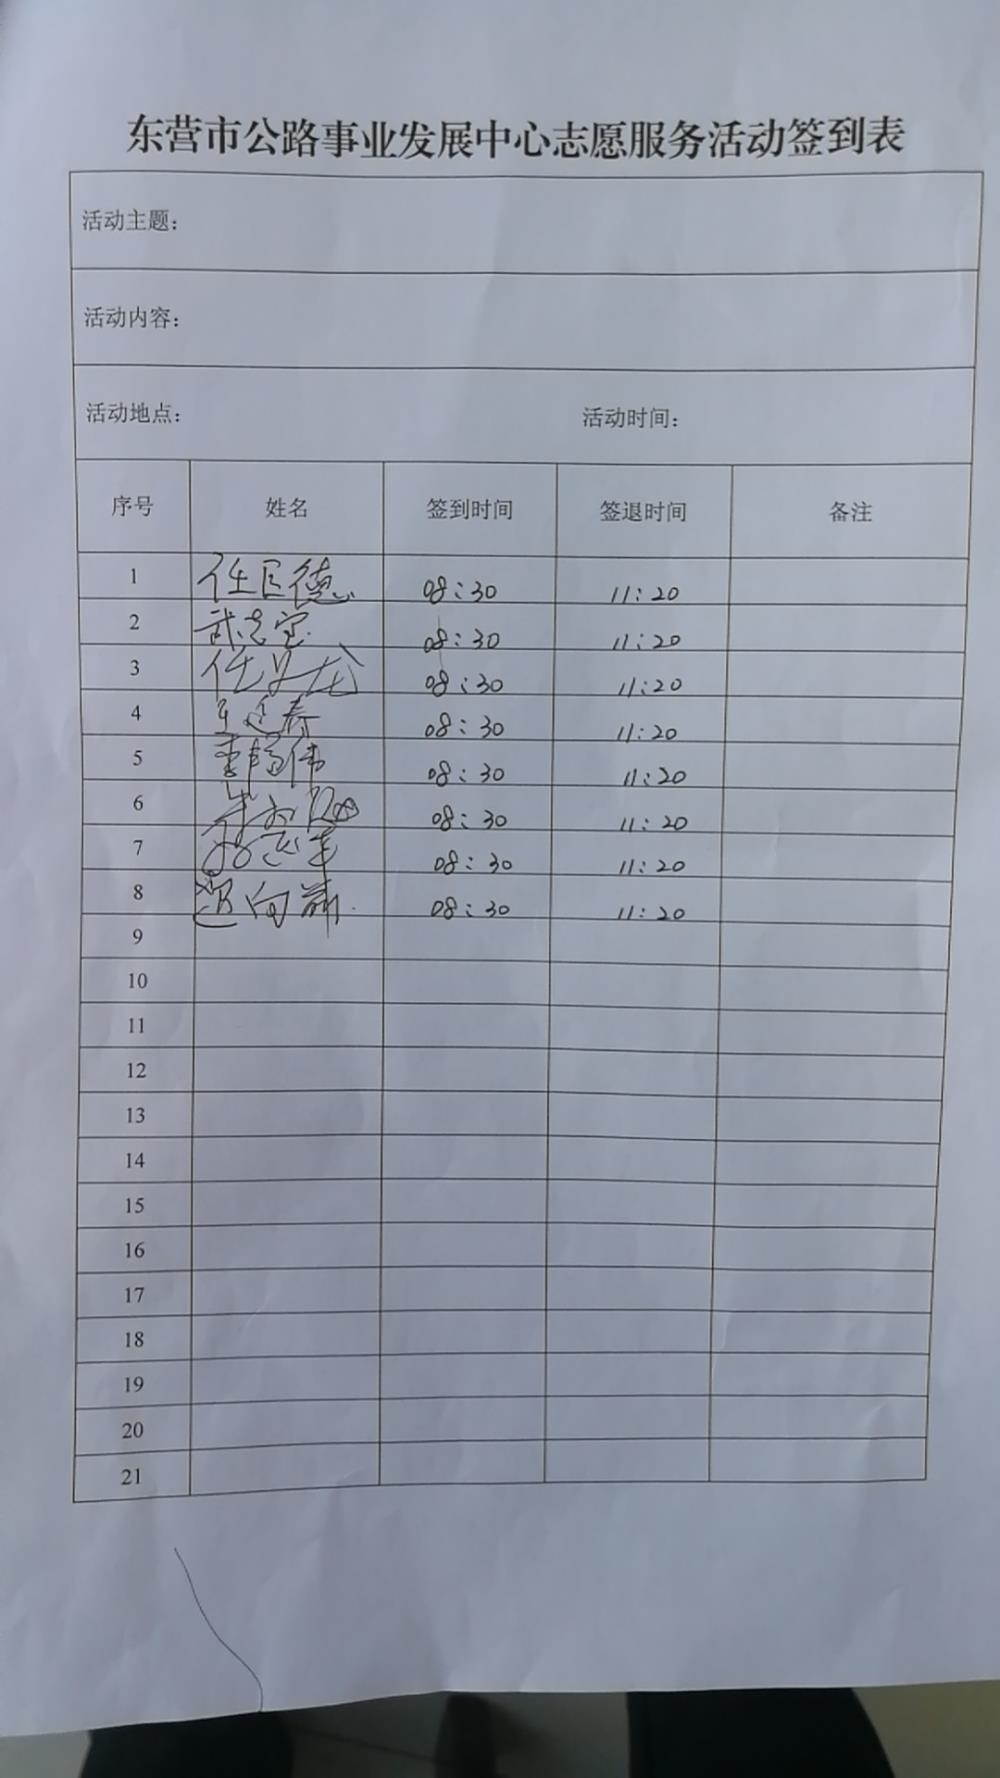 东营市公路事业发展中心志愿服务活动签到表
活动主题：
活动内容：
活动地点： 活动时间：
序号 姓名 签到时间 签退时间 备注
1 任巨德 08:30 11:20
2 武志宝 08:30 11:20
3 任义龙 08:30 11:20
4 王延春 08:30 11:20
5 李杨伟 08:30 11:20
6 08:30 11:20
7 08:30 11:20
8 08:30 11:20
9
10
11
12
13
14
15
16
17
18
19
20
21